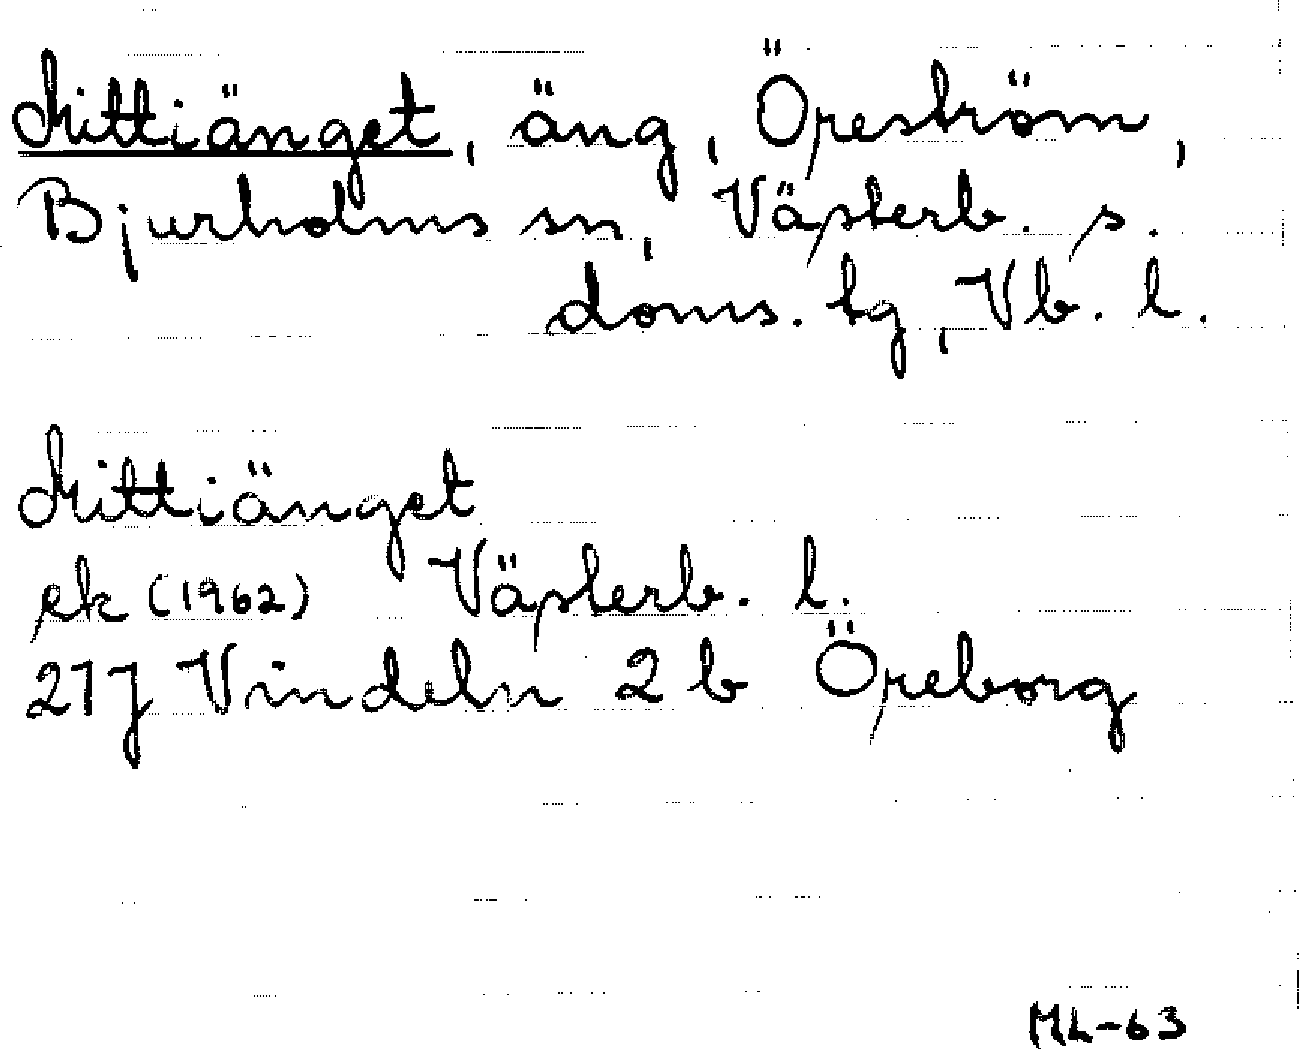 Mittiänget, äng, Öreström,
Bjurholms sn, Västerb. s.
doms. tg, Vb. l.
Mittiänget
ek (1962) Västerb. l.
21J Vindeln 2 b Öreborg
ML-63